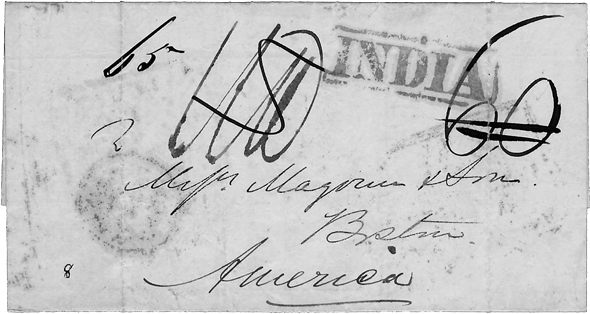 65
INDIA
60
2
Messrs Magoun & Son.
Boston.
America
8